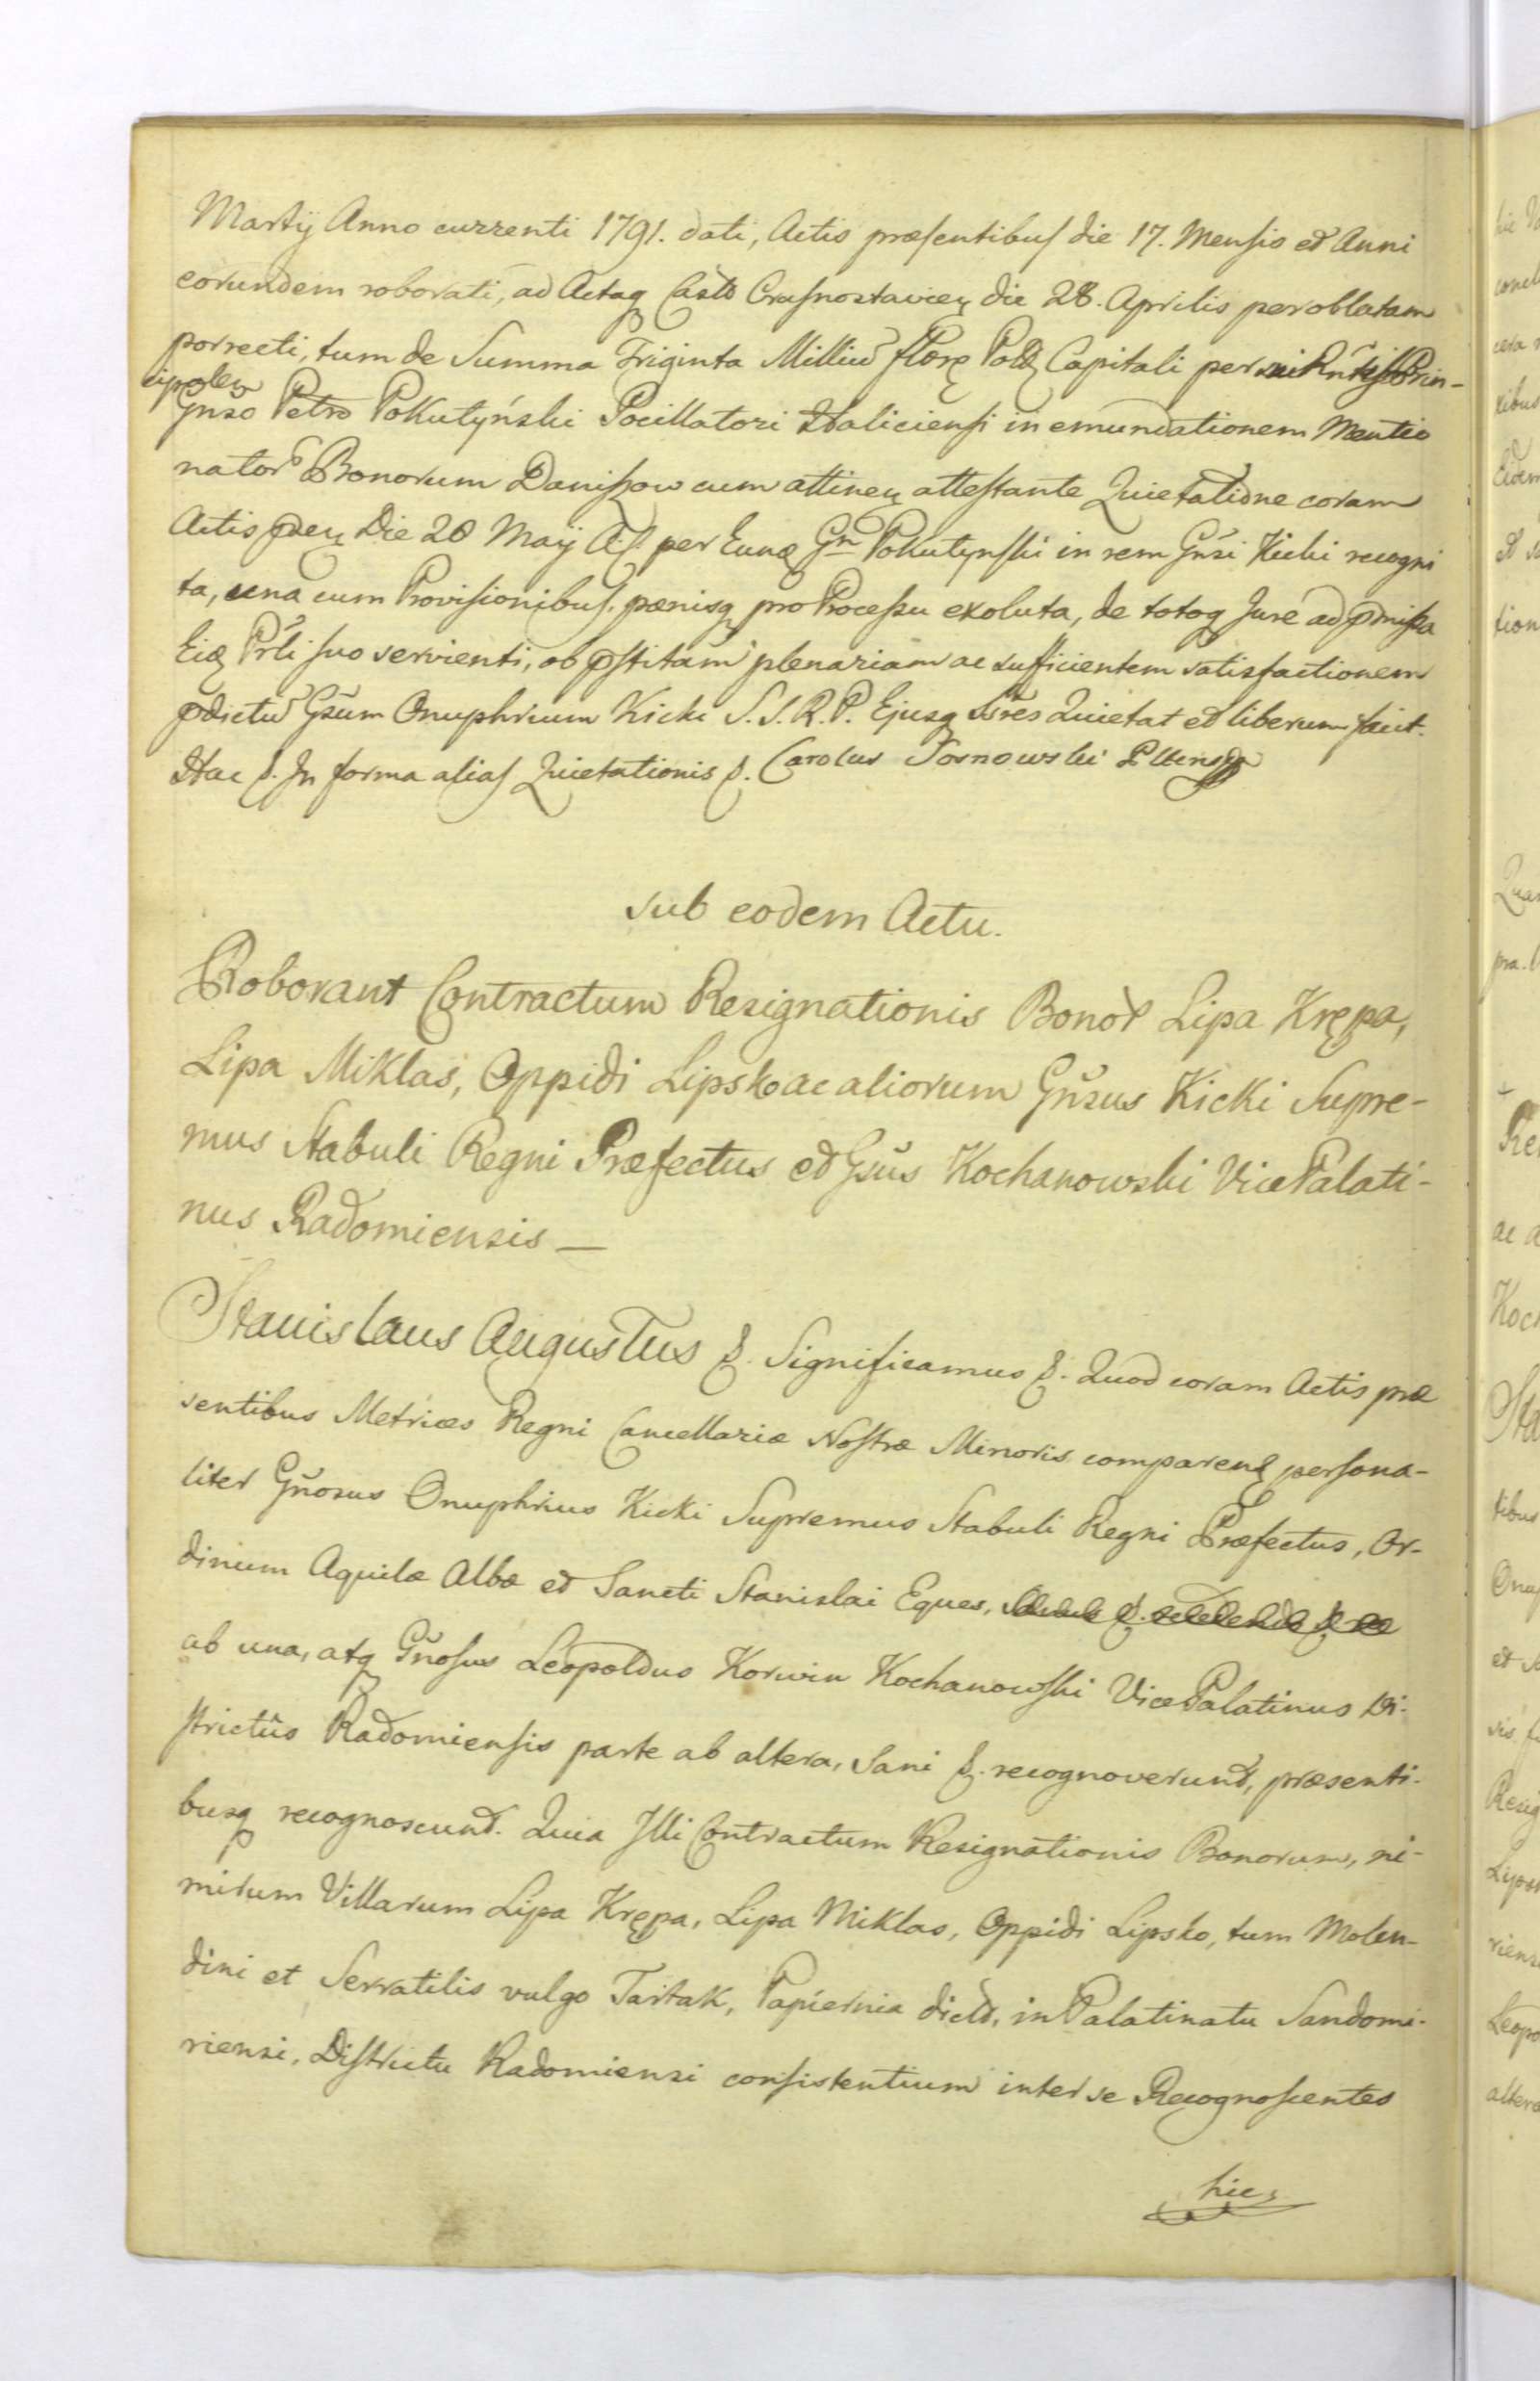 Martij Anno currenti 1791. dati, Actis præsentibus die 17. Mensis et Anni
eorundem roborati, ad Actaq Castr Crasnostavien die 28. Aprilis per oblatam
porrecti, tum de Summa Triginta Milliū flore Pol Capitali per Prin-
cipalem
Gnso Petro Pokutyński Pocillatori Haliciensi in emundationem Mentio
nator Bonorum Daniszow cum attinen attestante Quietatione coram
Actis pñen Die 28 Maij A. f. per Eund Gn Pokutynski in rem Gñsi Kicki recogni
ta, una cum Provisionibus, pœnisq pro Processu exoluta, de totoq Jure ad pmissa
Eid Prli suo servienti, ob pstitam plenariam ac sufficientem satisfactionem
pdictū Gsum Onuphrium Kicki S. S. R. P. Ejusq Sres Quietat et liberum facit.
Hac &. In forma alias Quietationis &. Carolus Tosnowski
sub eodem Actu.
Roborant Contractum Resignationis Bonor Lipa Krępa,
Lipa Miklas, Oppidi Lipsko ac aliorum Gñsus Kicki Supre-
mus Stabuli Regni Præfectus et Gsūs Kochanowski VicePalati-
nus Radomiensis —
Stanislaus Augustus &. Significamus &. Quod coram Actis præ
sentibus Metrices Regni Cancellariæ Nostræ Minoris comparen persona-
liter Gñosus Onuphrius Kicki Supremus Stabuli Regni Præfectus, Or-
dinum Aquilæ Albæ et Sancti Stanislai Eques,
ab una, atq Gñosus Leopoldus Korwin Kochanowski VicePalatinus Di-
strictûs Radomiensis parte ab altera, Sani &. recognoverunt, præsenti-
busq recognoscunt. Quia Illi Contractum Resignationis Bonorum, ni-
mirum Villarum Lipa Krępa, Lipa Miklas, Oppidi Lipsko, tum Molen-
dini et Serratilis vulgo Tartak, Papiernia dict, in Palatinatu Sandomi-
riensi, Districtu Radomiensi consistentium inter se Recognoscentes
hic